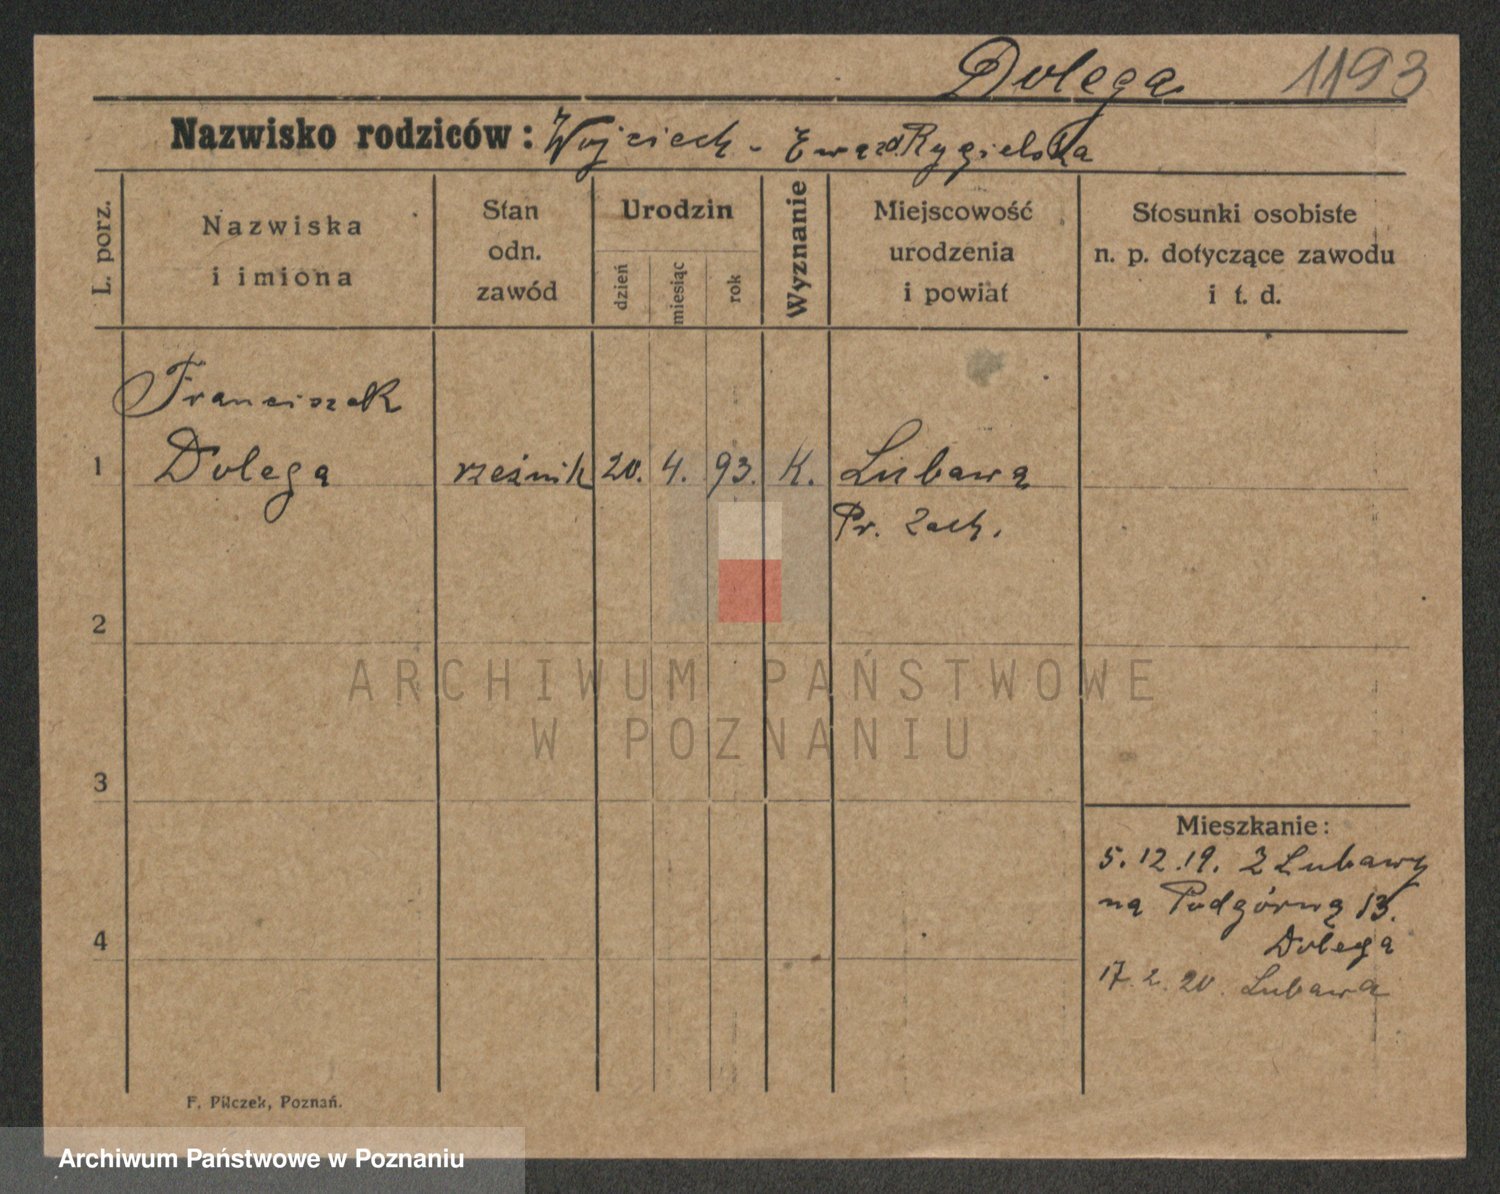 Dolega 1193
Nazwisko rodziców: Wojciech - Ewa zd. Rygielska
L. porz.
Nazwiska
i imiona
Stan
odn.
zawód
Urodzin
dzień
miesiąc
rok
Wyznanie
Miejscowość
urodzenia
i powiat
Stosunki osobiste
n. p. dotyczące zawodu
i t. d.
Franciszek
1 Dolega rzeźnik 20. 4. 93. K. Lubawa
Pr. Zach.
2
ARCHIWUM PAŃSTWOWE
W POZNANIU
3
Mieszkanie:
5.12.19. z Lubawy
na Podgórną 13.
4 Dolega
17. 2. 20 Lubawa
F. Pilczek, Poznań.
Archiwum Państwowe w Poznaniu